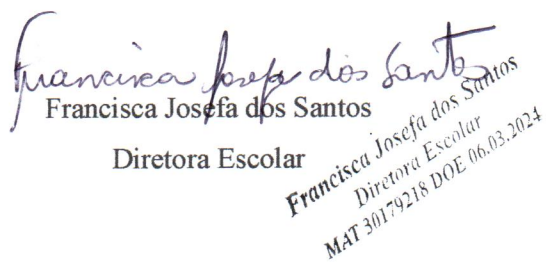 Francisca Josefa dos Santos
Francisca Josefa dos Santos
Diretora Escolar
Francisca Josefa dos Santos
Diretora Escolar
MAT 30179218 DOE 06.03.2024